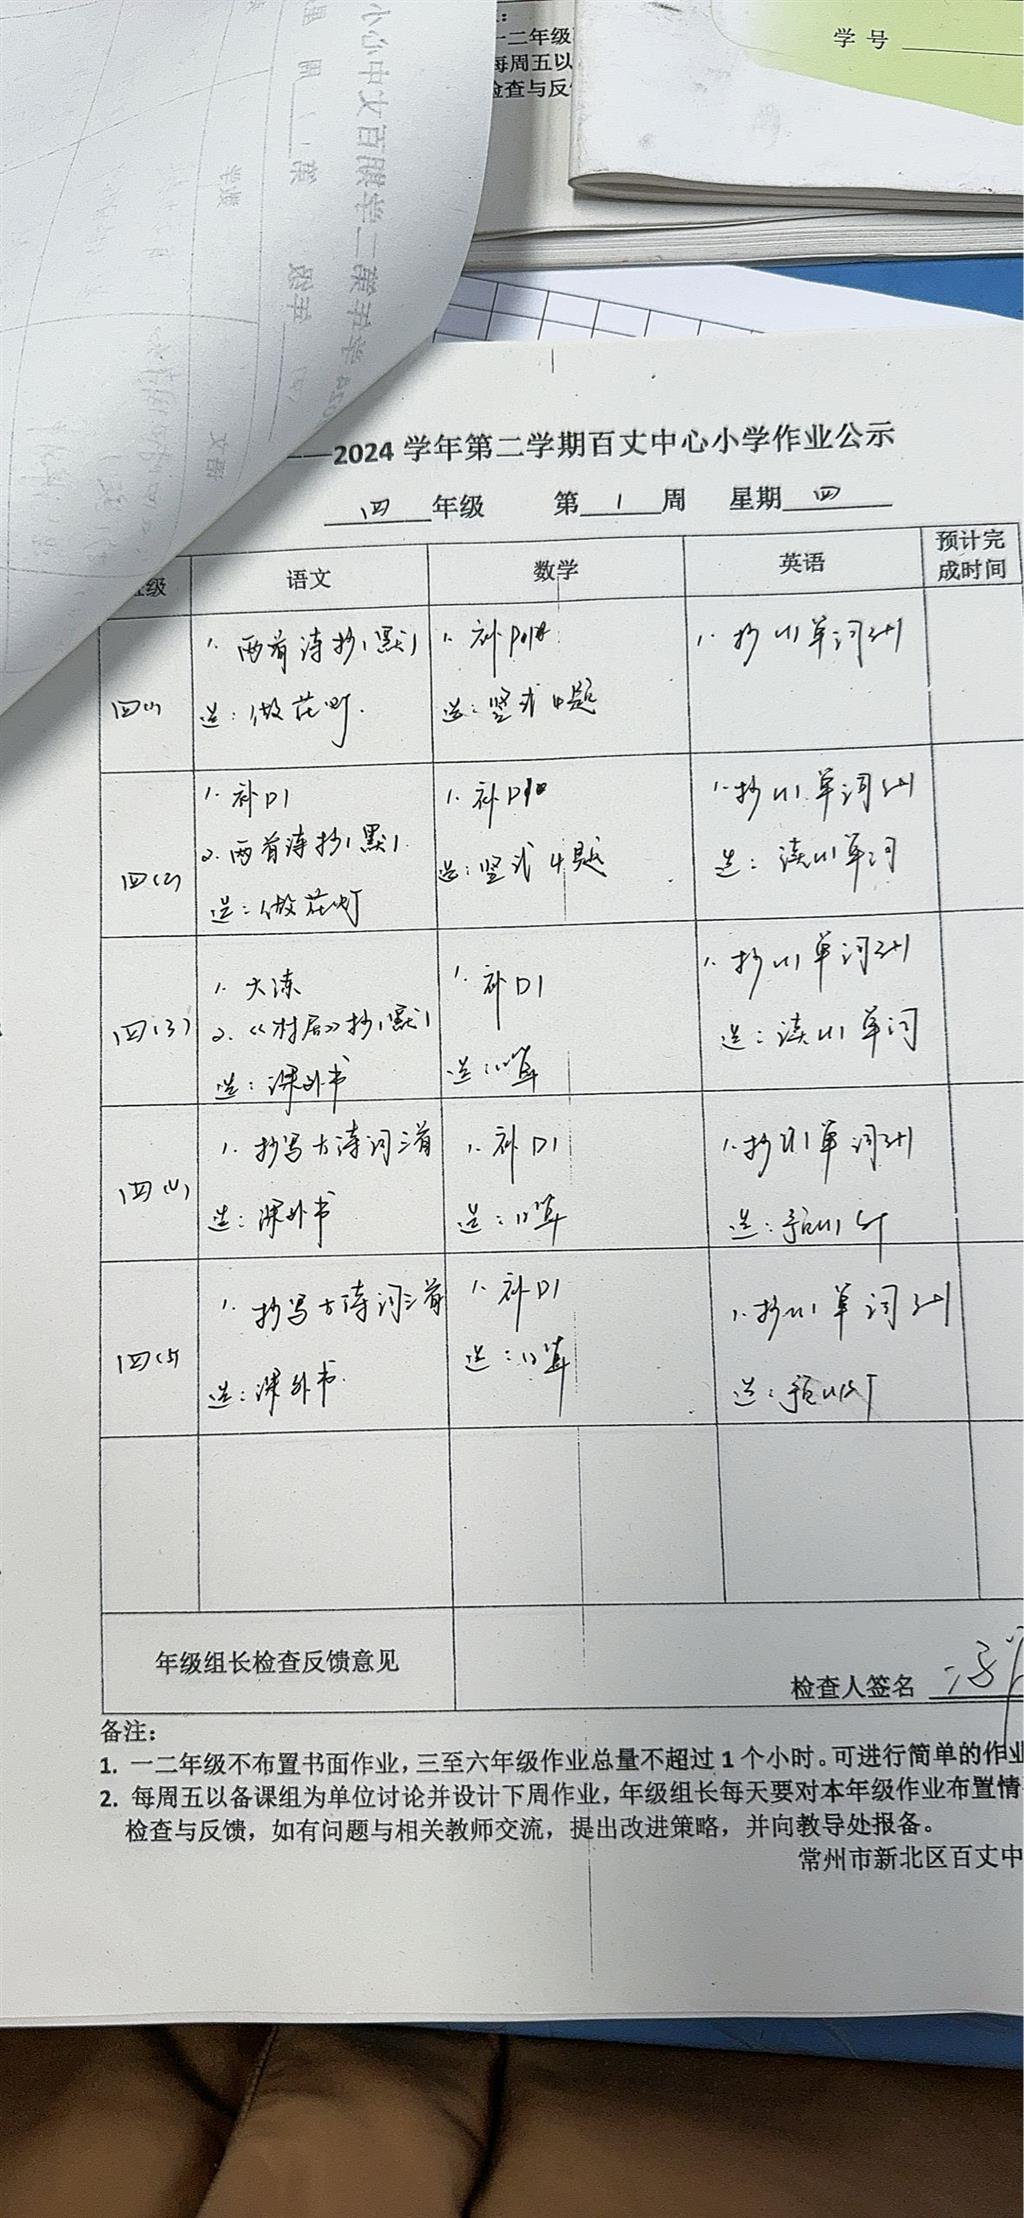 一二年级
每周五以
检查与反
学号
——2024学年第二学期百丈中心小学作业公示
四 年级 第 1 周 星期 四
级 语文 数学 英语 预计完成时间
四(1)
1. 两首诗抄1默1
选:做花灯.
1. 补
选:竖式4题
1. 抄U1单词2+1
四(2)
1. 补D1
2. 两首诗抄1默1.
选:做花灯
1. 补
选:竖式4题
1. 抄U1单词2+1
选:读U1单词
四(3)
1. 大练
2.《村居》抄1默1
选:课外书
1. 补D1
选:口算
1. 抄U1单词2+1
选:读U1单词
四(4)
1. 抄写古诗词三首
选:课外书
1. 补D1
选:口算
1. 抄U1单词2+1
选:预U1
四(5)
1. 抄写古诗词三首
选:课外书.
1. 补D1
选:口算
1. 抄U1单词2+1
选:预U1
年级组长检查反馈意见
检查人签名
备注:
1. 一二年级不布置书面作业,三至六年级作业总量不超过1个小时。可进行简单的作业
2. 每周五以备课组为单位讨论并设计下周作业,年级组长每天要对本年级作业布置情
检查与反馈,如有问题与相关教师交流,提出改进策略,并向教导处报备。
常州市新北区百丈中